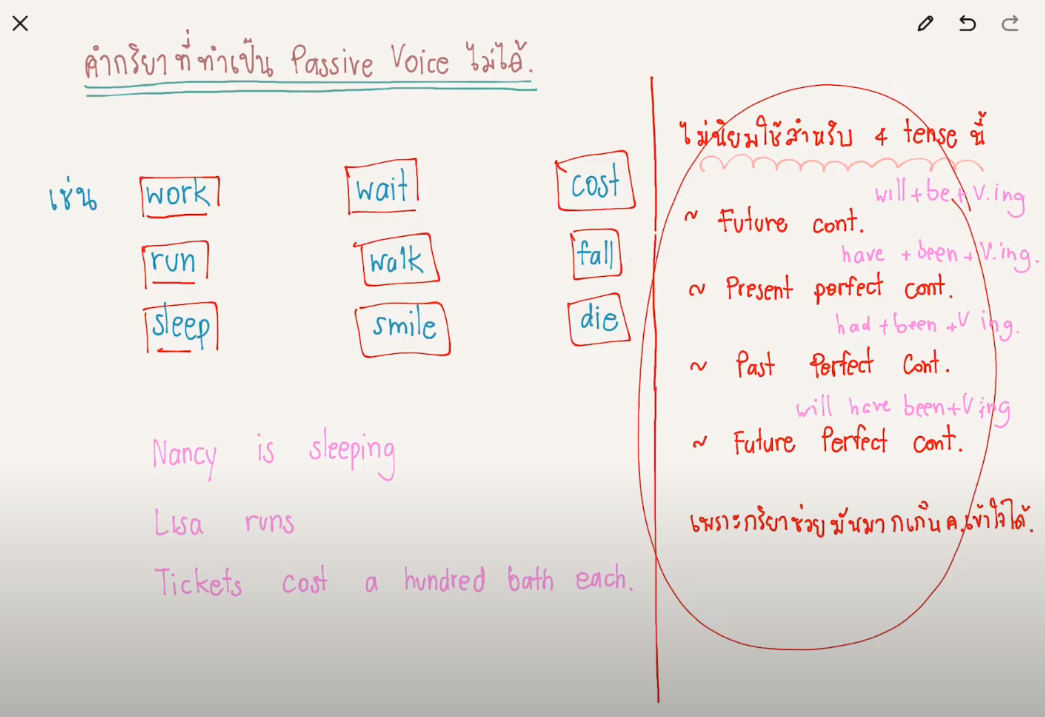 คำกริยาที่ทำเป็น Passive Voice ไม่ได้.
เช่น work wait cost
run walk fall
sleep smile die
Nancy is sleeping
Lisa runs
Tickets cost a hundred bath each.
ไม่นิยมใช้สำหรับ 4 tense นี้
will + be + V.ing
~ Future cont.
have + been + V.ing.
~ Present perfect cont.
had + been + V ing.
~ Past Perfect Cont.
will have been + V ing
~ Future Perfect cont.
เพราะกริยาช่วยมันมากเกินค.เข้าใจได้.